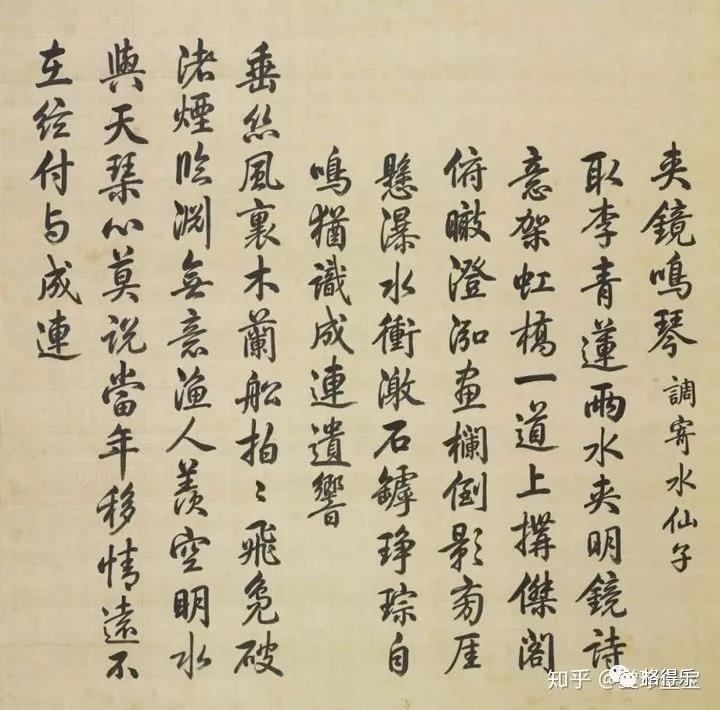 夹鏡鳴琴 調寄水仙子
取李青蓮兩水夹明鏡詩
意架虹橋一道上搆傑閣
俯瞰澄泓畫欄倒影旁厓
懸瀑水衝激石罅琤琮自
鳴猶識成連遺響
垂絲風裏木蘭船拍〻飛鳧破
渚煙臨淵無意漁人羨空明水
與天琹心莫說當年移情遠不
在絃付与成連
知乎
格得乐